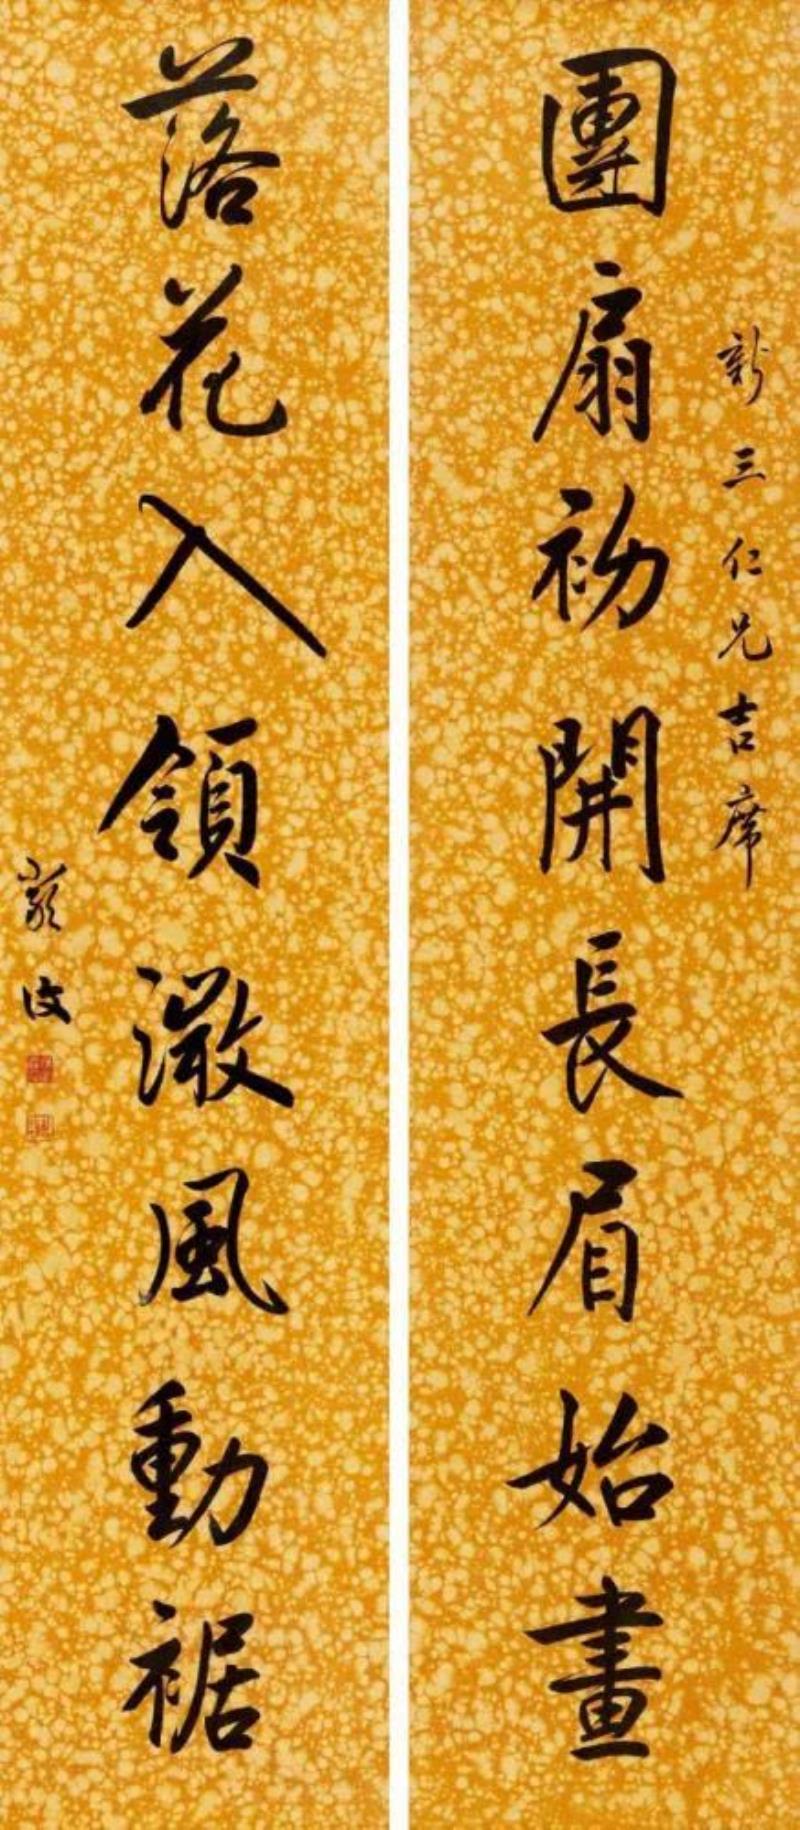 新三仁兄吉席
團扇初開長眉始畫
落花入領澂風動裾
嚴復